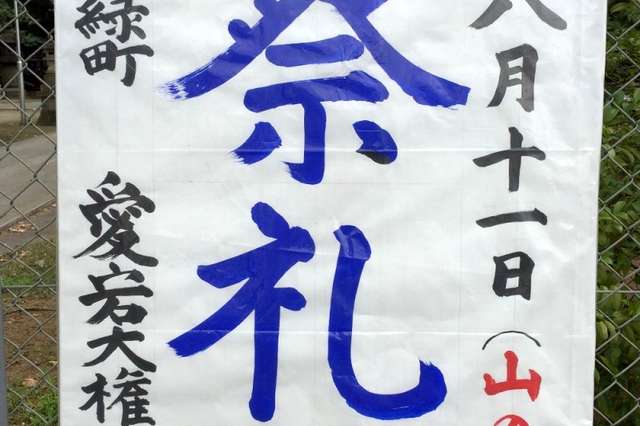 八月十一日(山の
祭礼
緑町 愛宕大権